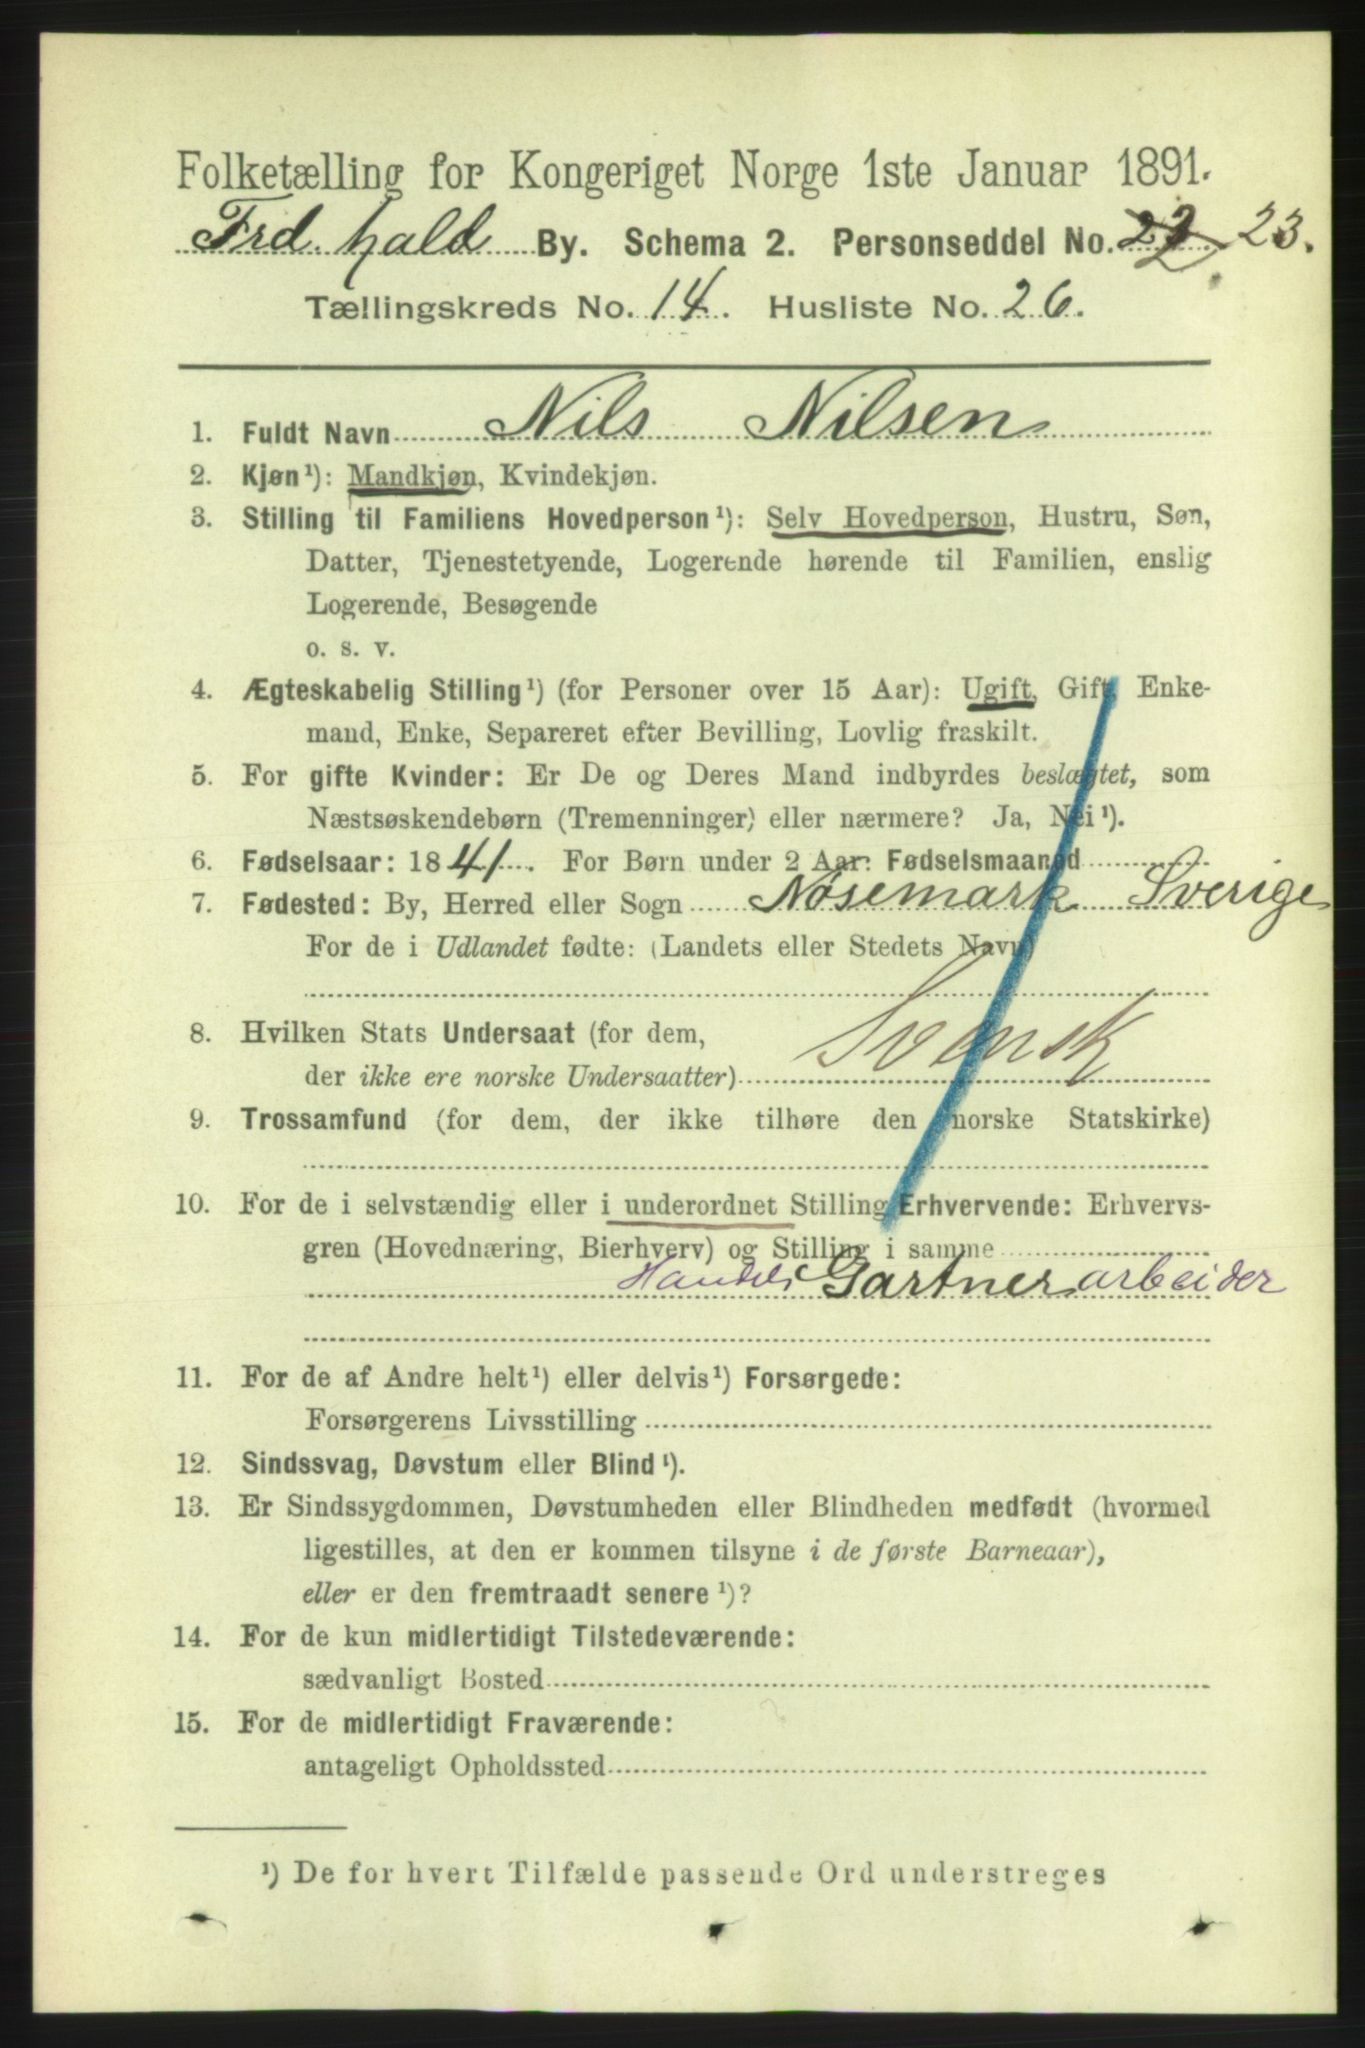 Folketælling for Kongeriget Norge 1ste Januar 1891.
Frd.hald By. Schema 2. Personseddel No. 22 23.
Tællingskreds No. 14. Husliste No. 26.
1. Fuldt Navn Nils Nilsen
2. Kjøn¹): Mandkjøn, Kvindekjøn.
3. Stilling til Familiens Hovedperson¹): Selv Hovedperson, Hustru, Søn,
Datter, Tjenestetyende, Logerende hørende til Familien, enslig
Logerende, Besøgende
o. s. v.
4. Ægteskabelig Stilling¹) (for Personer over 15 Aar): Ugift, Gift, Enke-
mand, Enke, Separeret efter Bevilling, Lovlig fraskilt.
5. For gifte Kvinder: Er De og Deres Mand indbyrdes beslægtet, som
Næstsøskendebørn (Tremenninger) eller nærmere? Ja, Nei¹).
6. Fødselsaar: 1841. For Børn under 2 Aar: Fødselsmaaned
7. Fødested: By, Herred eller Sogn Nøsemark Sverige
For de i Udlandet fødte: (Landets eller Stedets Navn)
8. Hvilken Stats Undersaat (for dem, Svensk
der ikke ere norske Undersaatter)
9. Trossamfund (for dem, der ikke tilhøre den norske Statskirke)
10. For de i selvstændig eller i underordnet Stilling Erhvervende: Erhvervs-
gren (Hovednæring, Bierhverv) og Stilling i samme
Handels Gartner arbeider
11. For de af Andre helt¹) eller delvis¹) Forsørgede:
Forsørgerens Livsstilling
12. Sindssvag, Døvstum eller Blind¹).
13. Er Sindssygdommen, Døvstumheden eller Blindheden medfødt (hvormed
ligestilles, at den er kommen tilsyne i de første Barneaar),
eller er den fremtraadt senere¹)?
14. For de kun midlertidigt Tilstedeværende:
sædvanligt Bosted
15. For de midlertidigt Fraværende:
antageligt Opholdssted
¹) De for hvert Tilfælde passende Ord understreges